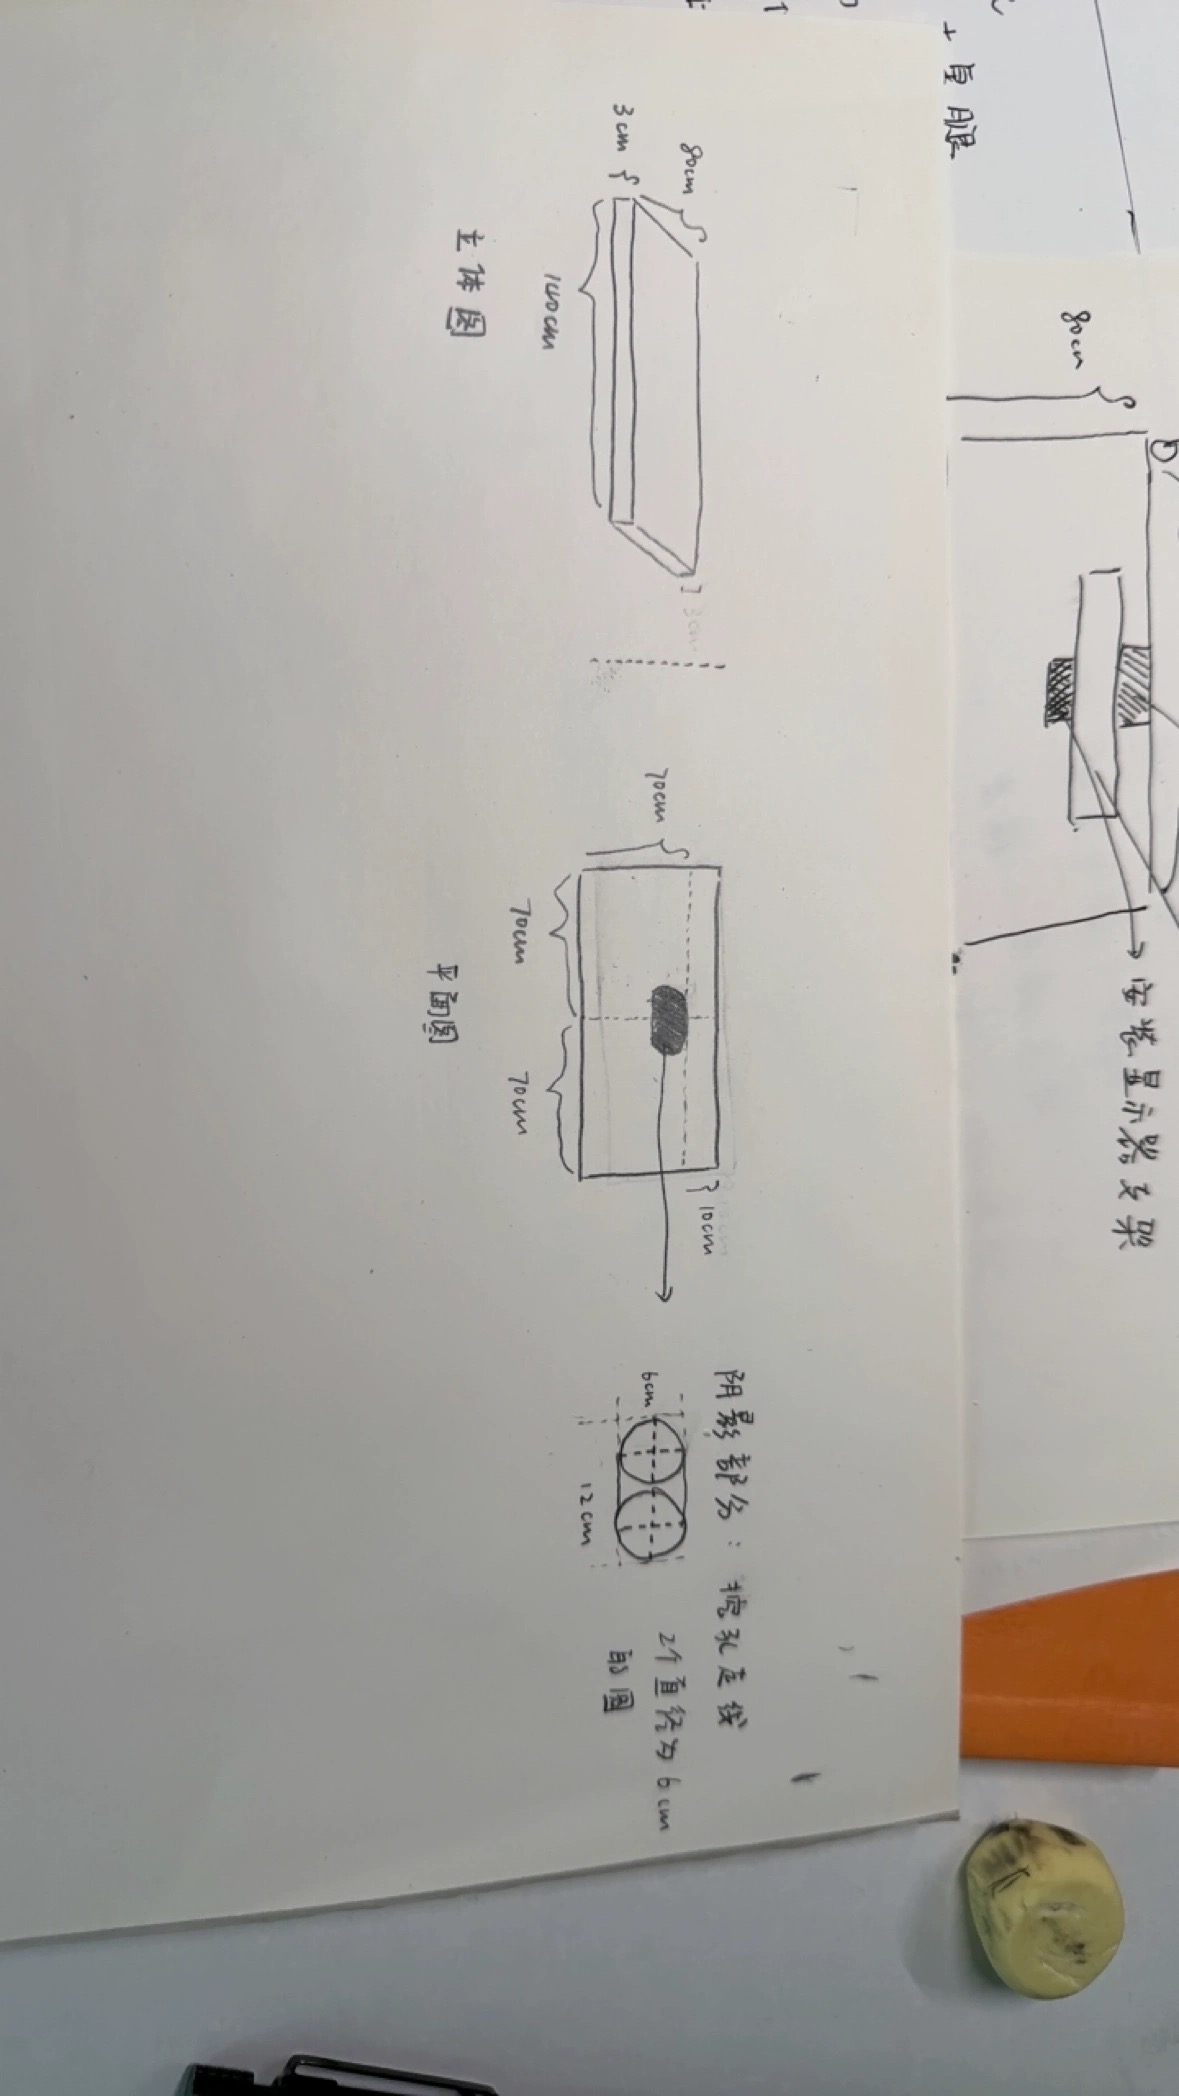 安装显示器支架
80cm
桌腿
80cm
3cm
3cm
140cm
立体图
10cm
70cm
70cm
70cm
平面图
阴影部分：挖孔走线
6cm
12cm
2个直径为6cm
的圆